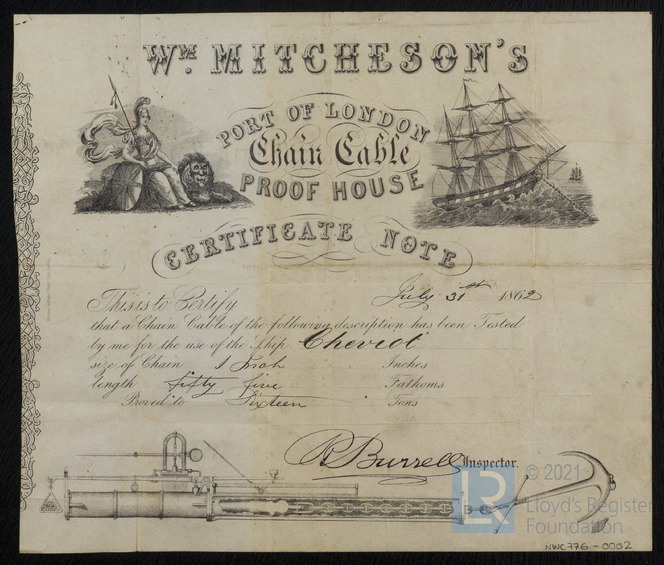 Wᴹ. MITCHESON'S
PORT OF LONDON
Chain Cable
PROOF HOUSE
CERTIFICATE NOTE
July 31st 1862
This is to Certify
that a Chain Cable of the following description has been Tested
by me for the use of the Ship Cheviot
size of Chain 1 Inch Inches
length fifty five Fathoms
Proved to Sixteen Tons
R Burrell Inspector.
© 2021
LR
Lloyd's Register
Foundation
NWC776-0002